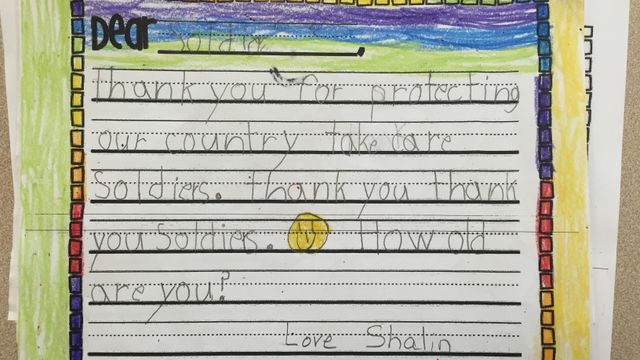 Dear Soldier
Thank you for protecting
our country take care
Soldiers. thank you thank
you Soldies. How old
are you?
Love Shalin